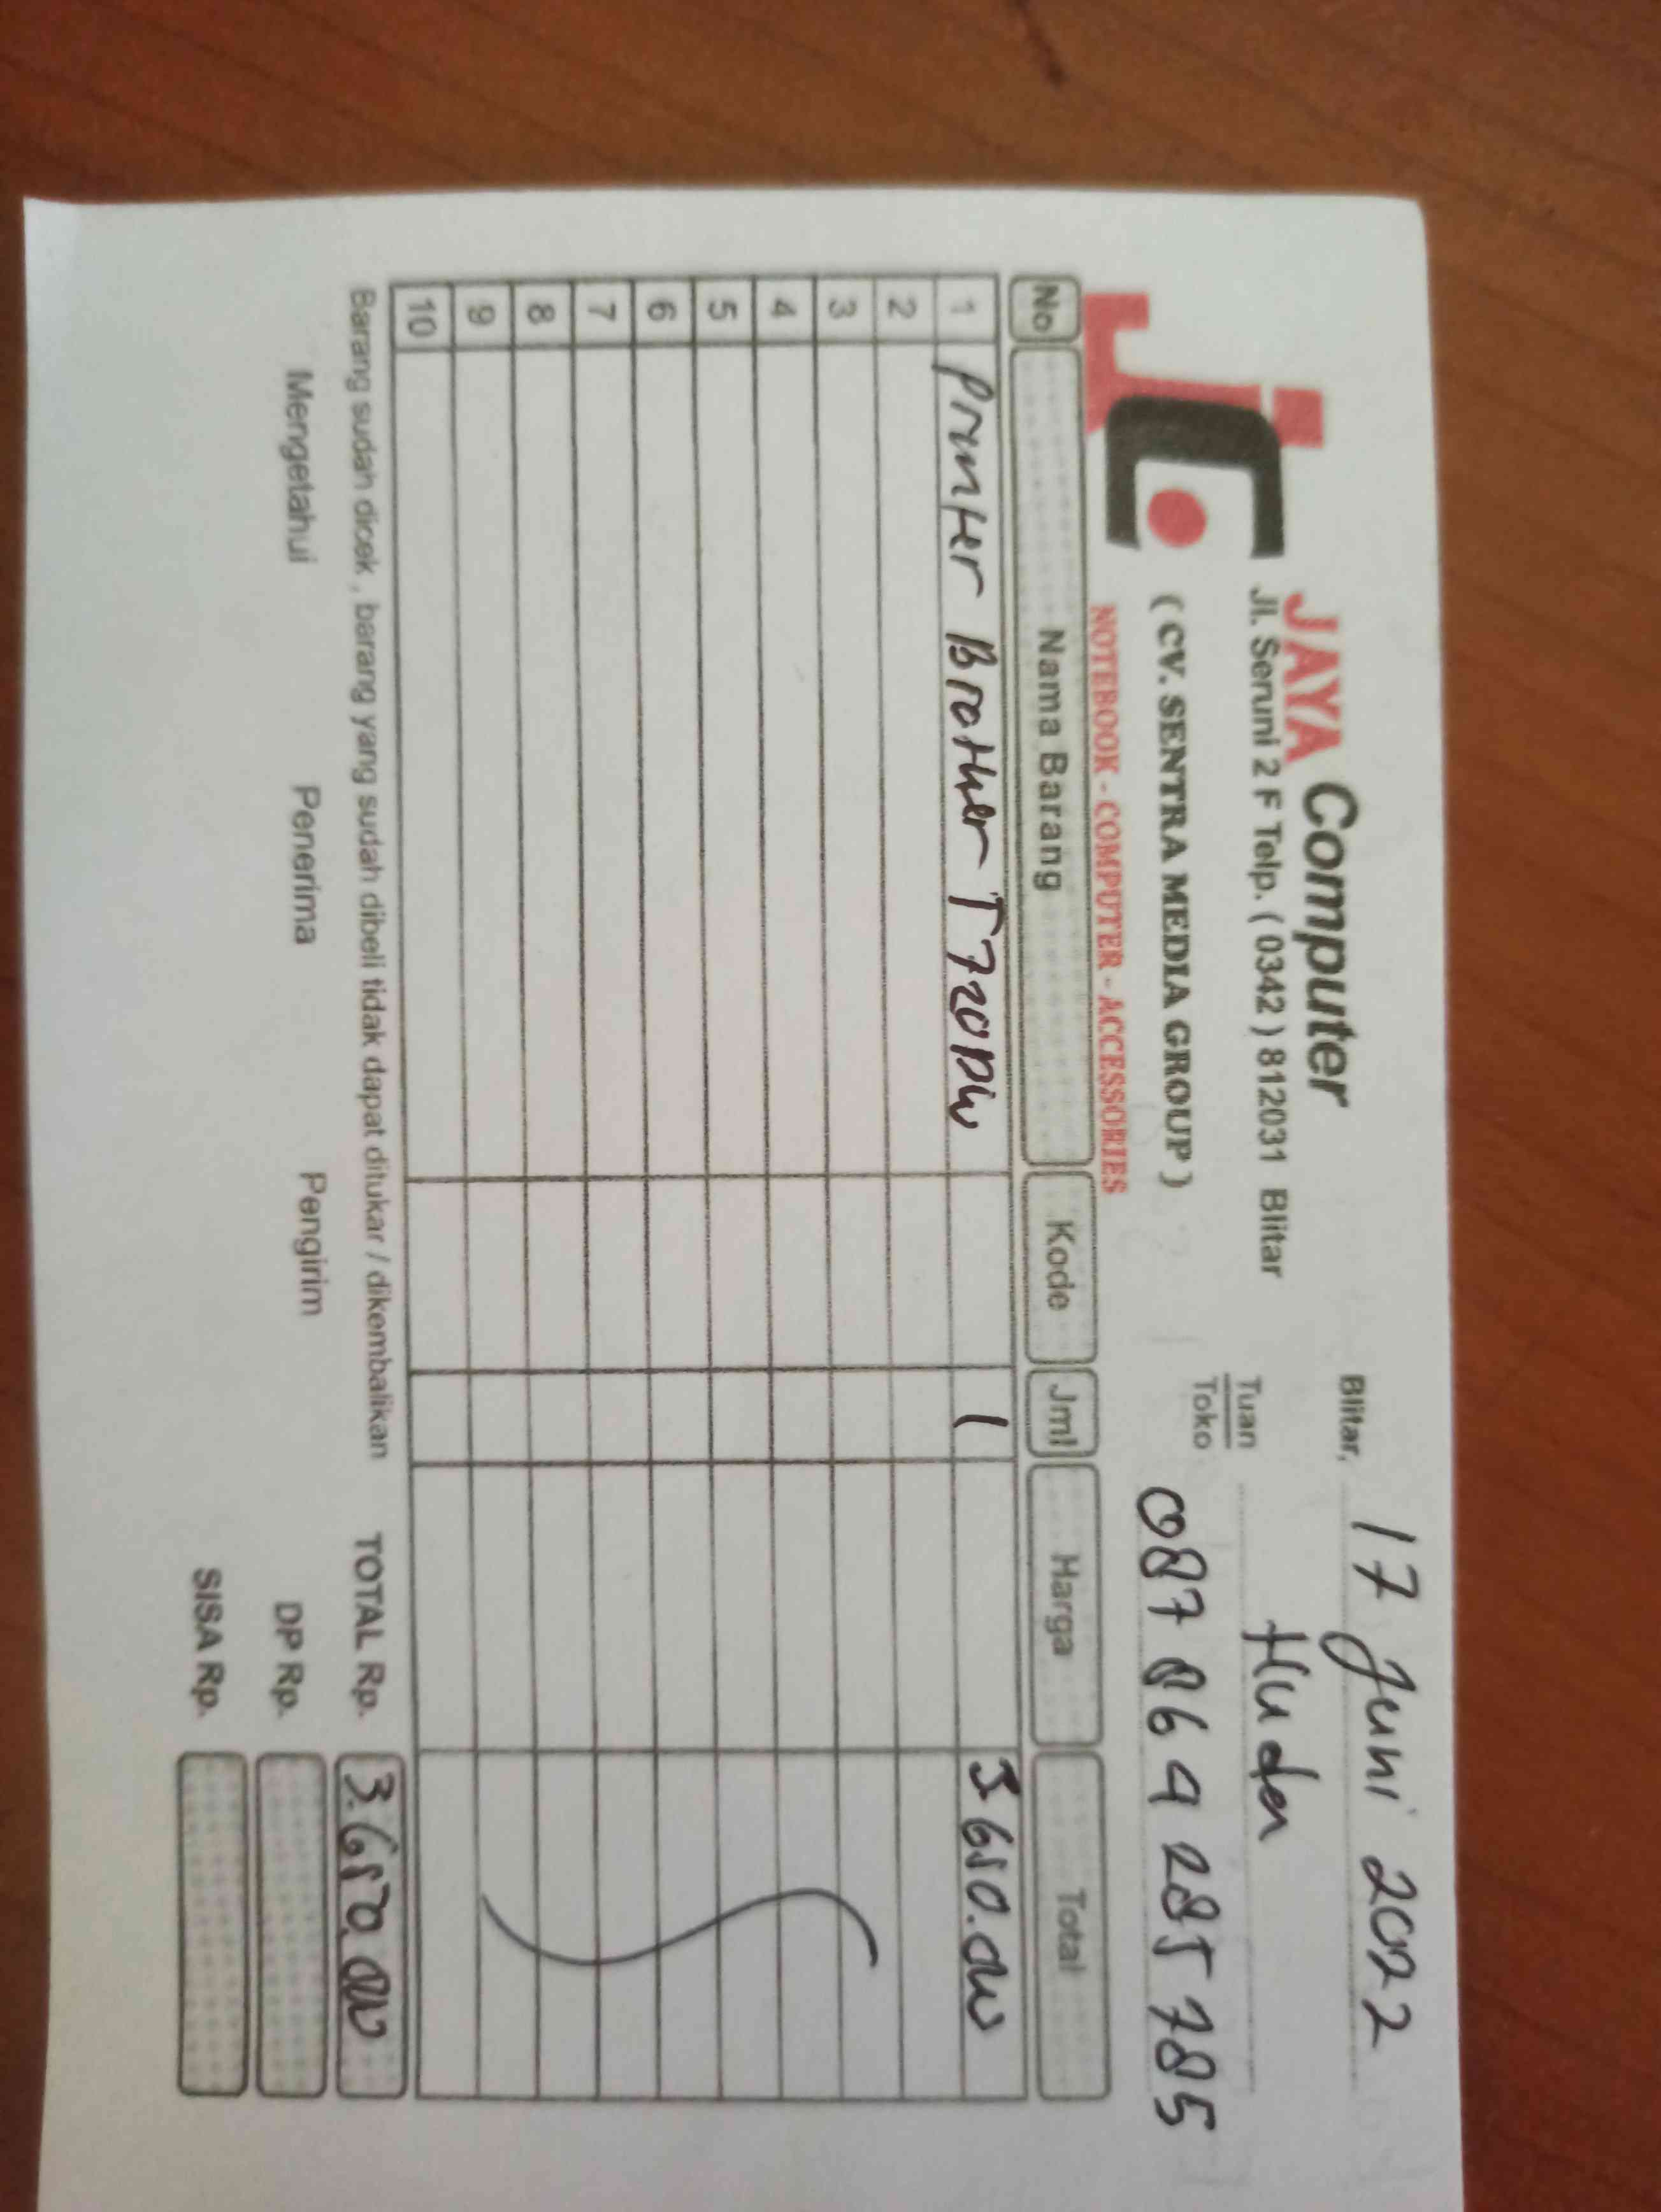 JAYA Computer
Jl. Seruni 2 F Telp. ( 0342 ) 812031 Blitar
( CV. SENTRA MEDIA GROUP )
NOTEBOOK - COMPUTER - ACCESSORIES
Blitar, 17 Juni 2022
Tuan Huda
Toko
087 864 285 785
No Nama Barang Kode Jml Harga Total
1 Printer Brother T720DW 1 3.650.000
2
3
4
5
6
7
8
9
10
Barang sudah dicek , barang yang sudah dibeli tidak dapat ditukar / dikembalikan
TOTAL Rp. 3.650.000
Mengetahui Penerima Pengirim
DP Rp.
SISA Rp.